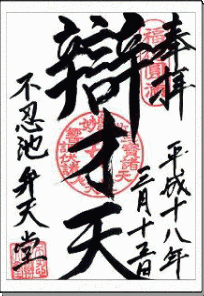 奉拝
平成十八年
三月十五日
辯才天
不忍池弁天堂